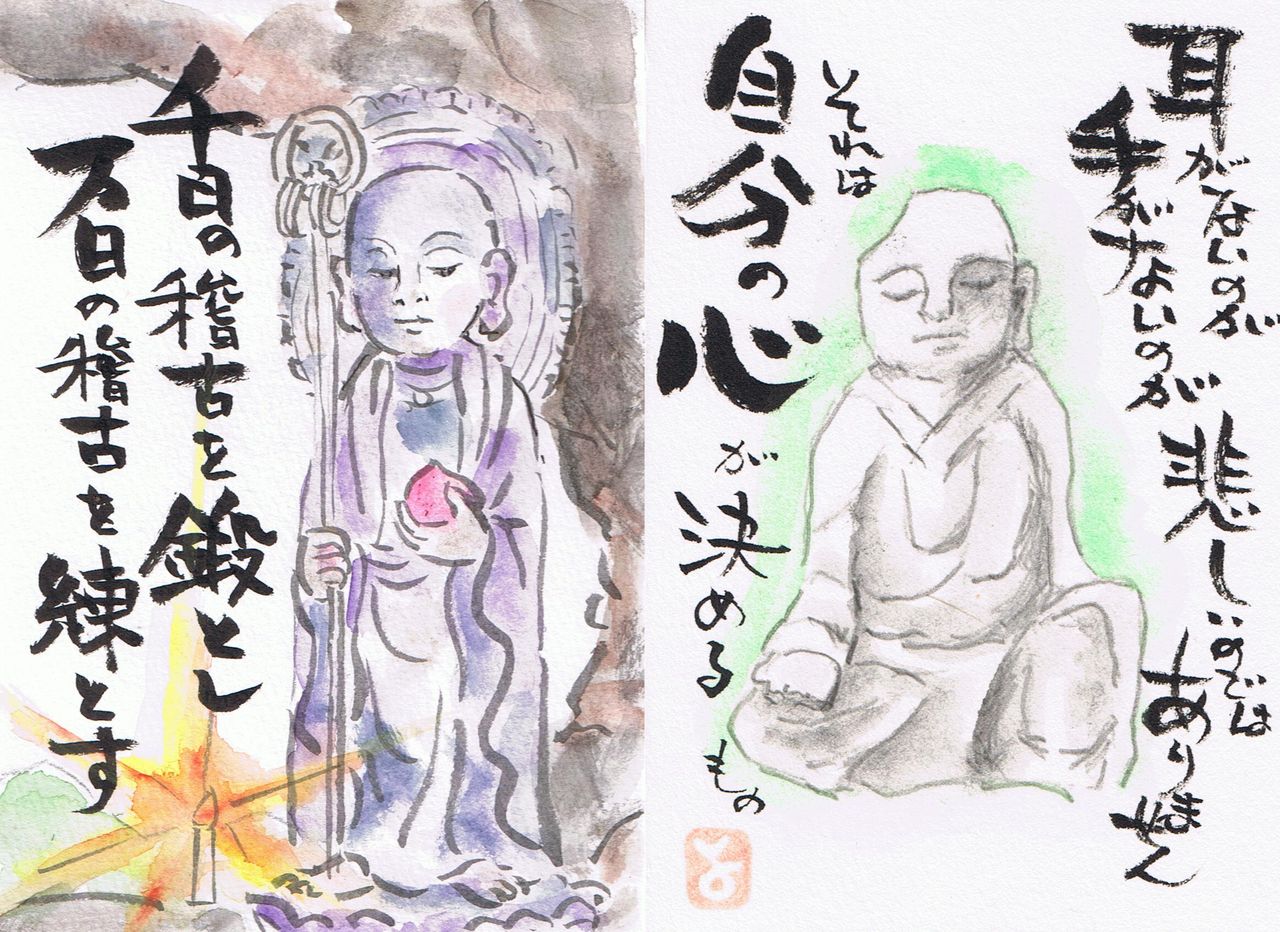 耳がないのが
手がないのが
悲しいのでは
ありません
それは
自分の心
が決める
もの
とよ
千日の稽古を鍛とし
万日の稽古を練とす